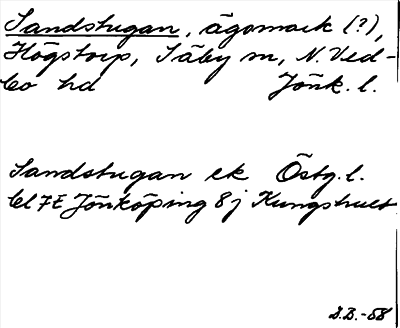 Sandstugan, ägomark (?),
Högstorp, Säby sn, N. Ved-
bo hd Jönk. l.
Sandstugan ek Östg. l.
bl 7E Jönköping 8j Kungshult
B.-58